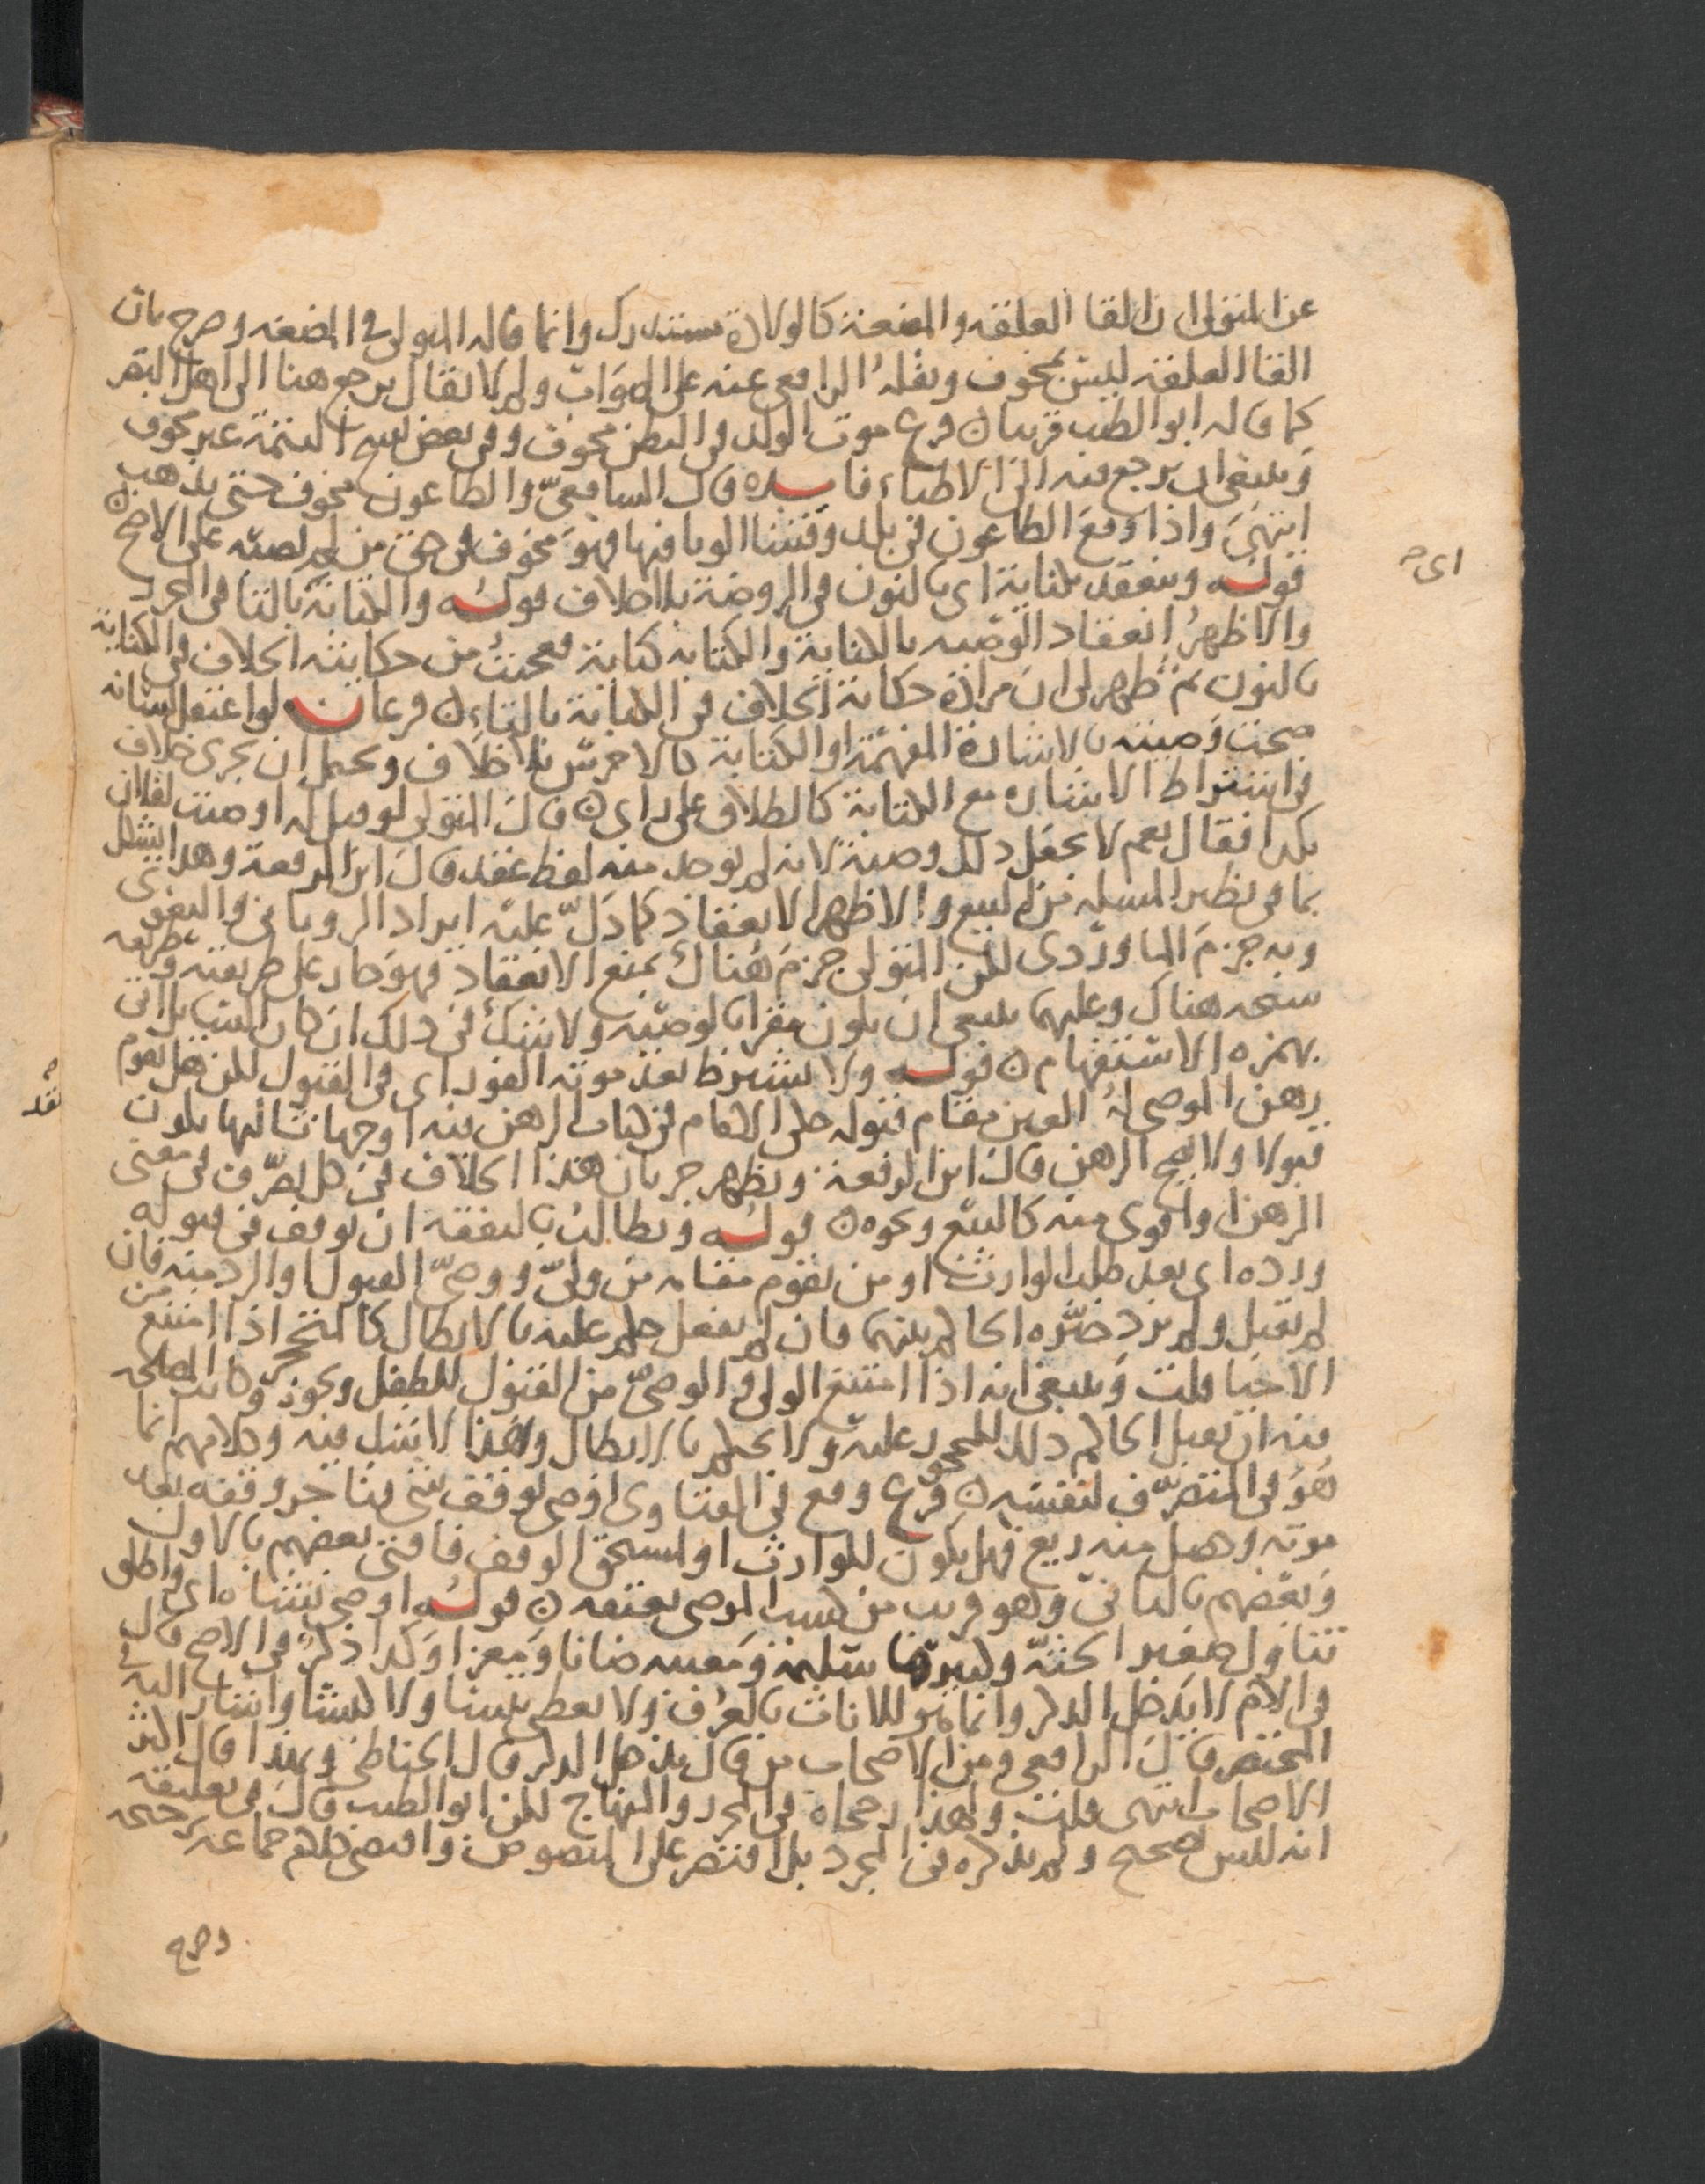 عن المتولي ان القا العلقه والمضغة كالولادة مستدرك وانما قاله المتولي في المضغه وصرح بان
القا العلقه ليس بمخوف ونقله الرافعي عنه على الصواب ولم لا يقال يرجع هنا الى اهل البقر
كما قاله ابو الطيب قريبا ن فرع موت الولد في البطن مخوف وفي بعض نسخ التتمة غير مخوف
وينبغي ان يرجع فيه الى الاطباء فايده قال الشافعيّ والطاعون مخوف حتى يذهب
انتهى واذا وقع الطاعون في بلد وفشا الوبا فيها فهو مخوف في حق من لم يصبه على الاصح ن
قوله وينعقد بكناية اي بالنون في الروضة بلا خلاف قوله والكتابة بالتا في المحرر
والاظهر انعقاد الوصيه بالكناية والكتابه كناية فعجبت من حكايته الخلاف في الكناية
بالنون ثم ظهر لي ان مراده حكاية الخلاف في الكتابة بالتاء ن فرعان لو اعتقل لسانه
صحت وصيته بالاشارة المفهمة او الكتابة كالاخرس بلا خلاف ويحتمل ان يجري خلاف
في اشتراط الاشاره مع الكتابة كالطلاق على راي ن قال المتولي لو قيل له اوصيت لفلان
بكذا فقال نعم لا يجعل ذلك وصية لانه لم يوجد منه لفظ عقد قال ابن الرفعة وهذا يشكل
بما في نظير المسله من البيع والاظهر الانعقاد كما دلّ عليه ايراد الروياني والبغوي
وبه جزم الماوردي لكن المتولي جزم هناك بمنع الانعقاد فهو جار على طريقته
هناك وعليهما ينبغي ان يكون مقرا بالوصيه ولا شك في ذلك ان كان
بهمزه الاستفهام ن قوله ولا يشترط بعد موته الفور اي في القبول لكن هل يقوم
رهن الموصى له العين مقام قبوله حكى الامام في كتاب الرهن فيه اوجها ثالثها يكون
قبولا ولا يصح الرهن قال ابن الرفعة ويظهر جريان هذا الخلاف في كل تصرّف في معنى
الرهن او اقوى منه كالبيع ونحوه ن قوله ويطالب بالنفقه ان توقف في قبوله
ورده اي بعد طلب الوارث او من يقوم مقامه من وليّ ووصيّ القبول او الرد منه فان
لم يقبل ولم يرد خيّره الحاكم بينهما فان لم يفعل حكم عليه بالابطال كالمتحجر اذا امتنع من
الاحيا قلت وينبغي انه اذا امتنع الولي او الوصيّ من القبول للطفل ونحوه وكانت المصلحه
فيه ان يقبل الحاكم ذلك للمحجور عليه ولا يحكم بالابطال وهذا لا شك فيه وكلامهم انما
هو في المتصرّف لنفسه ن فرع وقع في الفتاوى اوصى لوقف شي فتاخر وقفه بعد
موته وحصل منه ريع فهل يكون للوارث او لمستحق الوقف فافتى بعضهم بالاول
وبعضهم بالثاني وهو قريب من كسب الموصى بعتقه ن قوله اوصى بشاه اي واطلق
تناول صغير الجثّة وكبيرها سليمة ومعيبه ضانا ومعزا وكذا ذكر في الاصح قال
في الام لا يدخل الذكر وانما هو للاناث بالعرف ولا يعطى تيسا ولا كبشا واشار اليه في
المختصر قال الرافعي ومن الاصحاب من قال يدخل الذكر قال الحناطي وبهذا قال اكثر
الاصحاب انتهى قلت ولهذا رجحاه في المحرر والمنهاج لكن ابو الطيب قال في تعليقه
انه ليس بصحيح ولم يذكره في المجرد بل اقتصر على المنصوص واقتضى كلام جماعه ترجيحه
وصرح